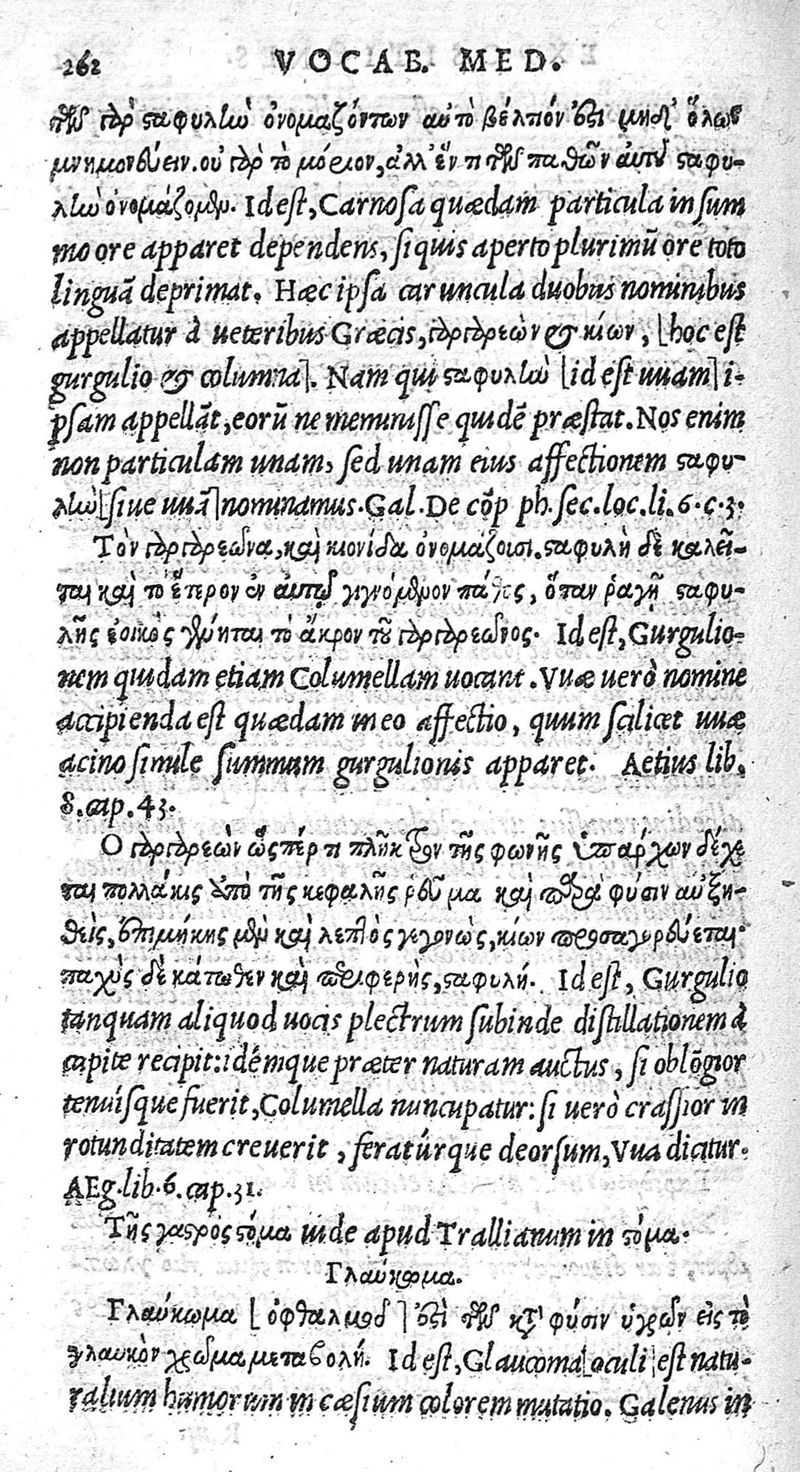 262 VOCAB. MED.
τῶν γὰρ σαφυλὴν ὀνομαζόντων αὐτὸ βέλτιόν ἐστι μηδ' ὅλως
μνημονεύειν. οὐ γὰρ τὸ μόριον, ἀλλ' ἕν τι τῶν παθῶν αὐτοῦ σταφυ-
λὴν ὀνομάζομεν. Id est, Carnosa quædam particula in sum
mo ore apparet dependens, si quis aperto plurimũ ore toto
linguã deprimat. Hæc ipsa caruncula duobus nominibus
appellatur à ueteribus Græcis, γαργαρεὼν & κίων, [hoc est
gurgulio & columna]. Nam qui σταφυλὴν [id est uuam] i-
psam appellãt, eorũ ne meminisse quidẽ præstat. Nos enim
non particulam unam, sed unam eius affectionem σταφυ-
λὴν [siue uuã] nominamus. Gal. De cõp ph. sec. loc. li. 6. c. 3.
Τὸν γαργαρεῶνα, καὶ κιονίδα ὀνομάζοισι. σταφυλὴ δὲ καλεῖ-
ται καὶ τὸ ἕτερον ἐν αὐτῷ γιγνόμενον πάθος, ὅταν ῥαγῇ σταφυ-
λῆς ἐοικὸς γένηται τὸ ἄκρον τοῦ γαργαρεῶνος. Id est, Gurgulio-
nem quidam etiam Columellam uocant. Vuæ uerò nomine
accipienda est quædam in eo affectio, quum scilicet uuæ
acino simile summum gurgulionis apparet. Aetius lib.
8. cap. 43.
Ο γαργαρεὼν ὥςπέρ τι πλῆκτρον τῆς φωνῆς ὑπάρχων δέχε
ται πολλάκις ἀπὸ τῆς κεφαλῆς ῥεῦμα καὶ παρὰ φύσιν αὐξη-
θεὶς, ἐπιμήκης μὲν καὶ λεπτὸς γεγονὼς, κίων προσαγορεύεται·
παχὺς δὲ κάτωθεν καὶ περιφερὴς, σταφυλή. Id est, Gurgulio
tanquam aliquod uocis plectrum subinde distillationem à
capite recipit: idémque præter naturam auctus, si oblõgior
tenuísque fuerit, Columella nuncupatur: si uerò crassior in
rotunditatem creuerit, feratúrque deorsum, Vua dicitur.
AEg. lib. 6. cap. 31.
Τῆς γαστρὸς στόμα uide apud Trallianum in στόμα.
Γλαύκωμα.
Γλαύκωμα [ὀφθαλμοῦ] ἐστὶ τῶν κατὰ φύσιν ὑγρῶν εἰς τὸ
γλαυκὸν χρῶμα μεταβολή. Id est, Glaucoma [oculi] est natu-
ralium humorum in cæsium colorem mutatio. Galenus in